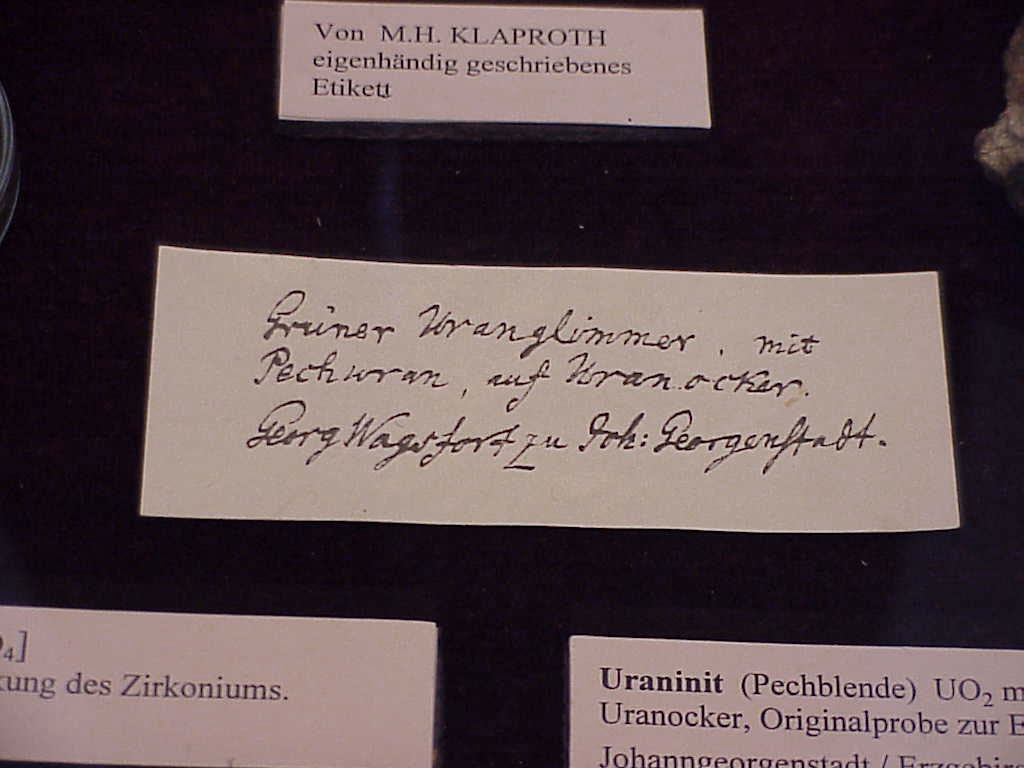 Von M.H. KLAPROTH
eigenhändig geschriebenes
Etikett
Grüner Uranglimmer, mit
Pechuran, auf Uranocker.
Georg Wagsfort zu Joh: Georgenstadt.
4]
kung des Zirkoniums.
Uraninit (Pechblende) UO₂ m
Uranocker, Originalprobe zur E
Johanngeorgenstadt / Erzgebirg